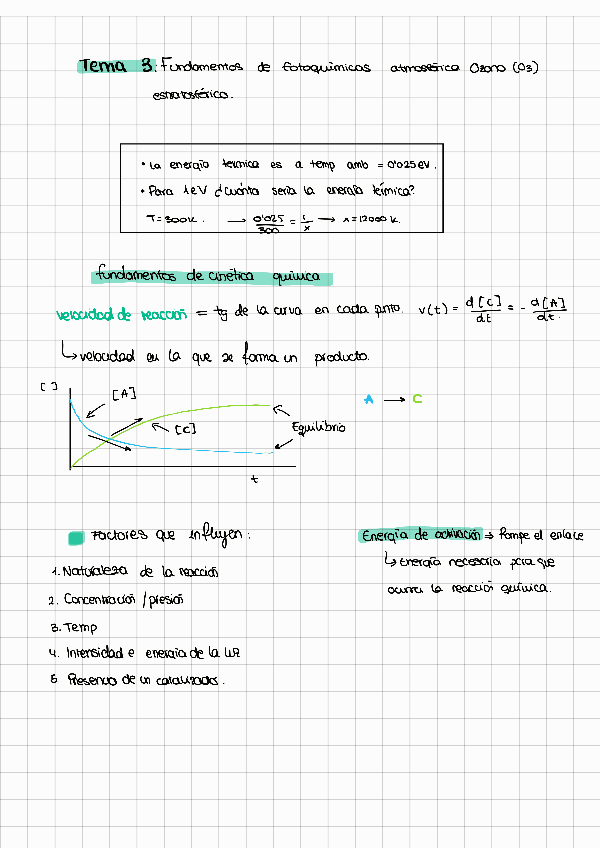 Tema 3: Fundamentos de fotoquímicas atmosférica Ozono (O3)
estratosférico.
• La energía térmica es a temp amb = 0'025 eV.
• Para 1eV ¿cuánto sería la energía térmica?
T = 300K. → 0'025/300 = 1/x → x = 12000 K.
fundamentos de cinética química
velocidad de reacción = tg de la curva en cada pnto. v(t) = d[C]/dt = - d[A]/dt.
↳ velocidad en la que se forma un producto.
[ ]
[A]
A → C
[C]
Equilibrio
t
Factores que influyen:
1. Naturaleza de la reacción
2. Concentración / presión
3. Temp
4. Intensidad e energía de la luz
5 Presencia de un catalizador.
Energía de activación ⇒ Rompe el enlace
↳ Energía necesaria para que
ocurra la reacción química.